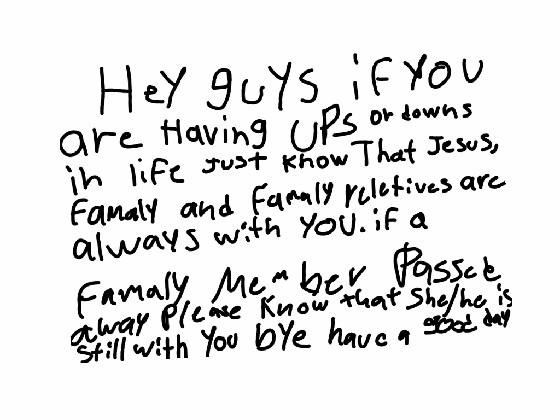 Hey guys if you
are Having UPs or downs
in life Just know That Jesus,
Famaly and Famaly reletives are
always with you. if a
Famaly Member Passed
away Please know that She/he is
still with you bye have a good day